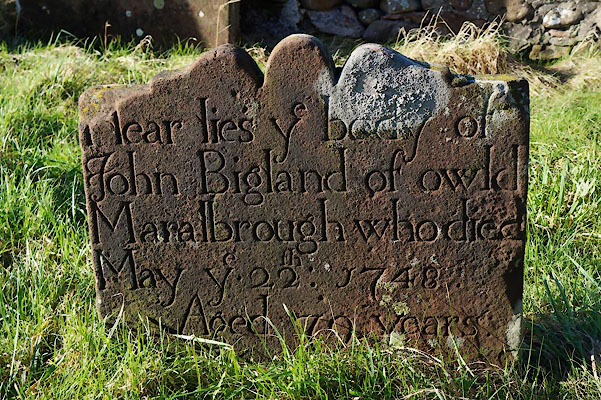 Near lies yᵉ body of
John Bigland of owld
Maralbrough who died
May yᵉ: 22ᵗʰ: 1748
Aged 79 years